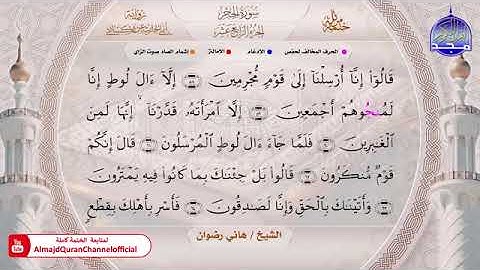 سورة الحجر
الجزء الرابع عشر
الحرف المخالف لحفص
الإدغام
الإمالة
إشمام الصاد صوت الزاي
قَالُوٓاْ إِنَّآ أُرْسِلْنَآ إِلَىٰ قَوْمٍ مُّجْرِمِينَ ۝ إِلَّآ ءَالَ لُوطٍ إِنَّا
لَمُنجُوهُمْ أَجْمَعِينَ ۝ إِلَّا ٱمْرَأَتَهُۥ قَدَّرْنَآ إِنَّهَا لَمِنَ
ٱلْغَٰبِرِينَ ۝ فَلَمَّا جَآءَ ءَالَ لُوطٍ ٱلْمُرْسَلُونَ ۝ قَالَ إِنَّكُمْ
قَوْمٌ مُّنكَرُونَ ۝ قَالُواْ بَلْ جِئْنَٰكَ بِمَا كَانُواْ فِيهِ يَمْتَرُونَ
۝ وَأَتَيْنَٰكَ بِٱلْحَقِّ وَإِنَّا لَصَٰدِقُونَ ۝ فَأَسْرِ بِأَهْلِكَ بِقِطْعٍ
الشيخ / هاني رضوان
لمتابعة الختمة كاملة
AlmajdQuranChannelofficial
YouTube